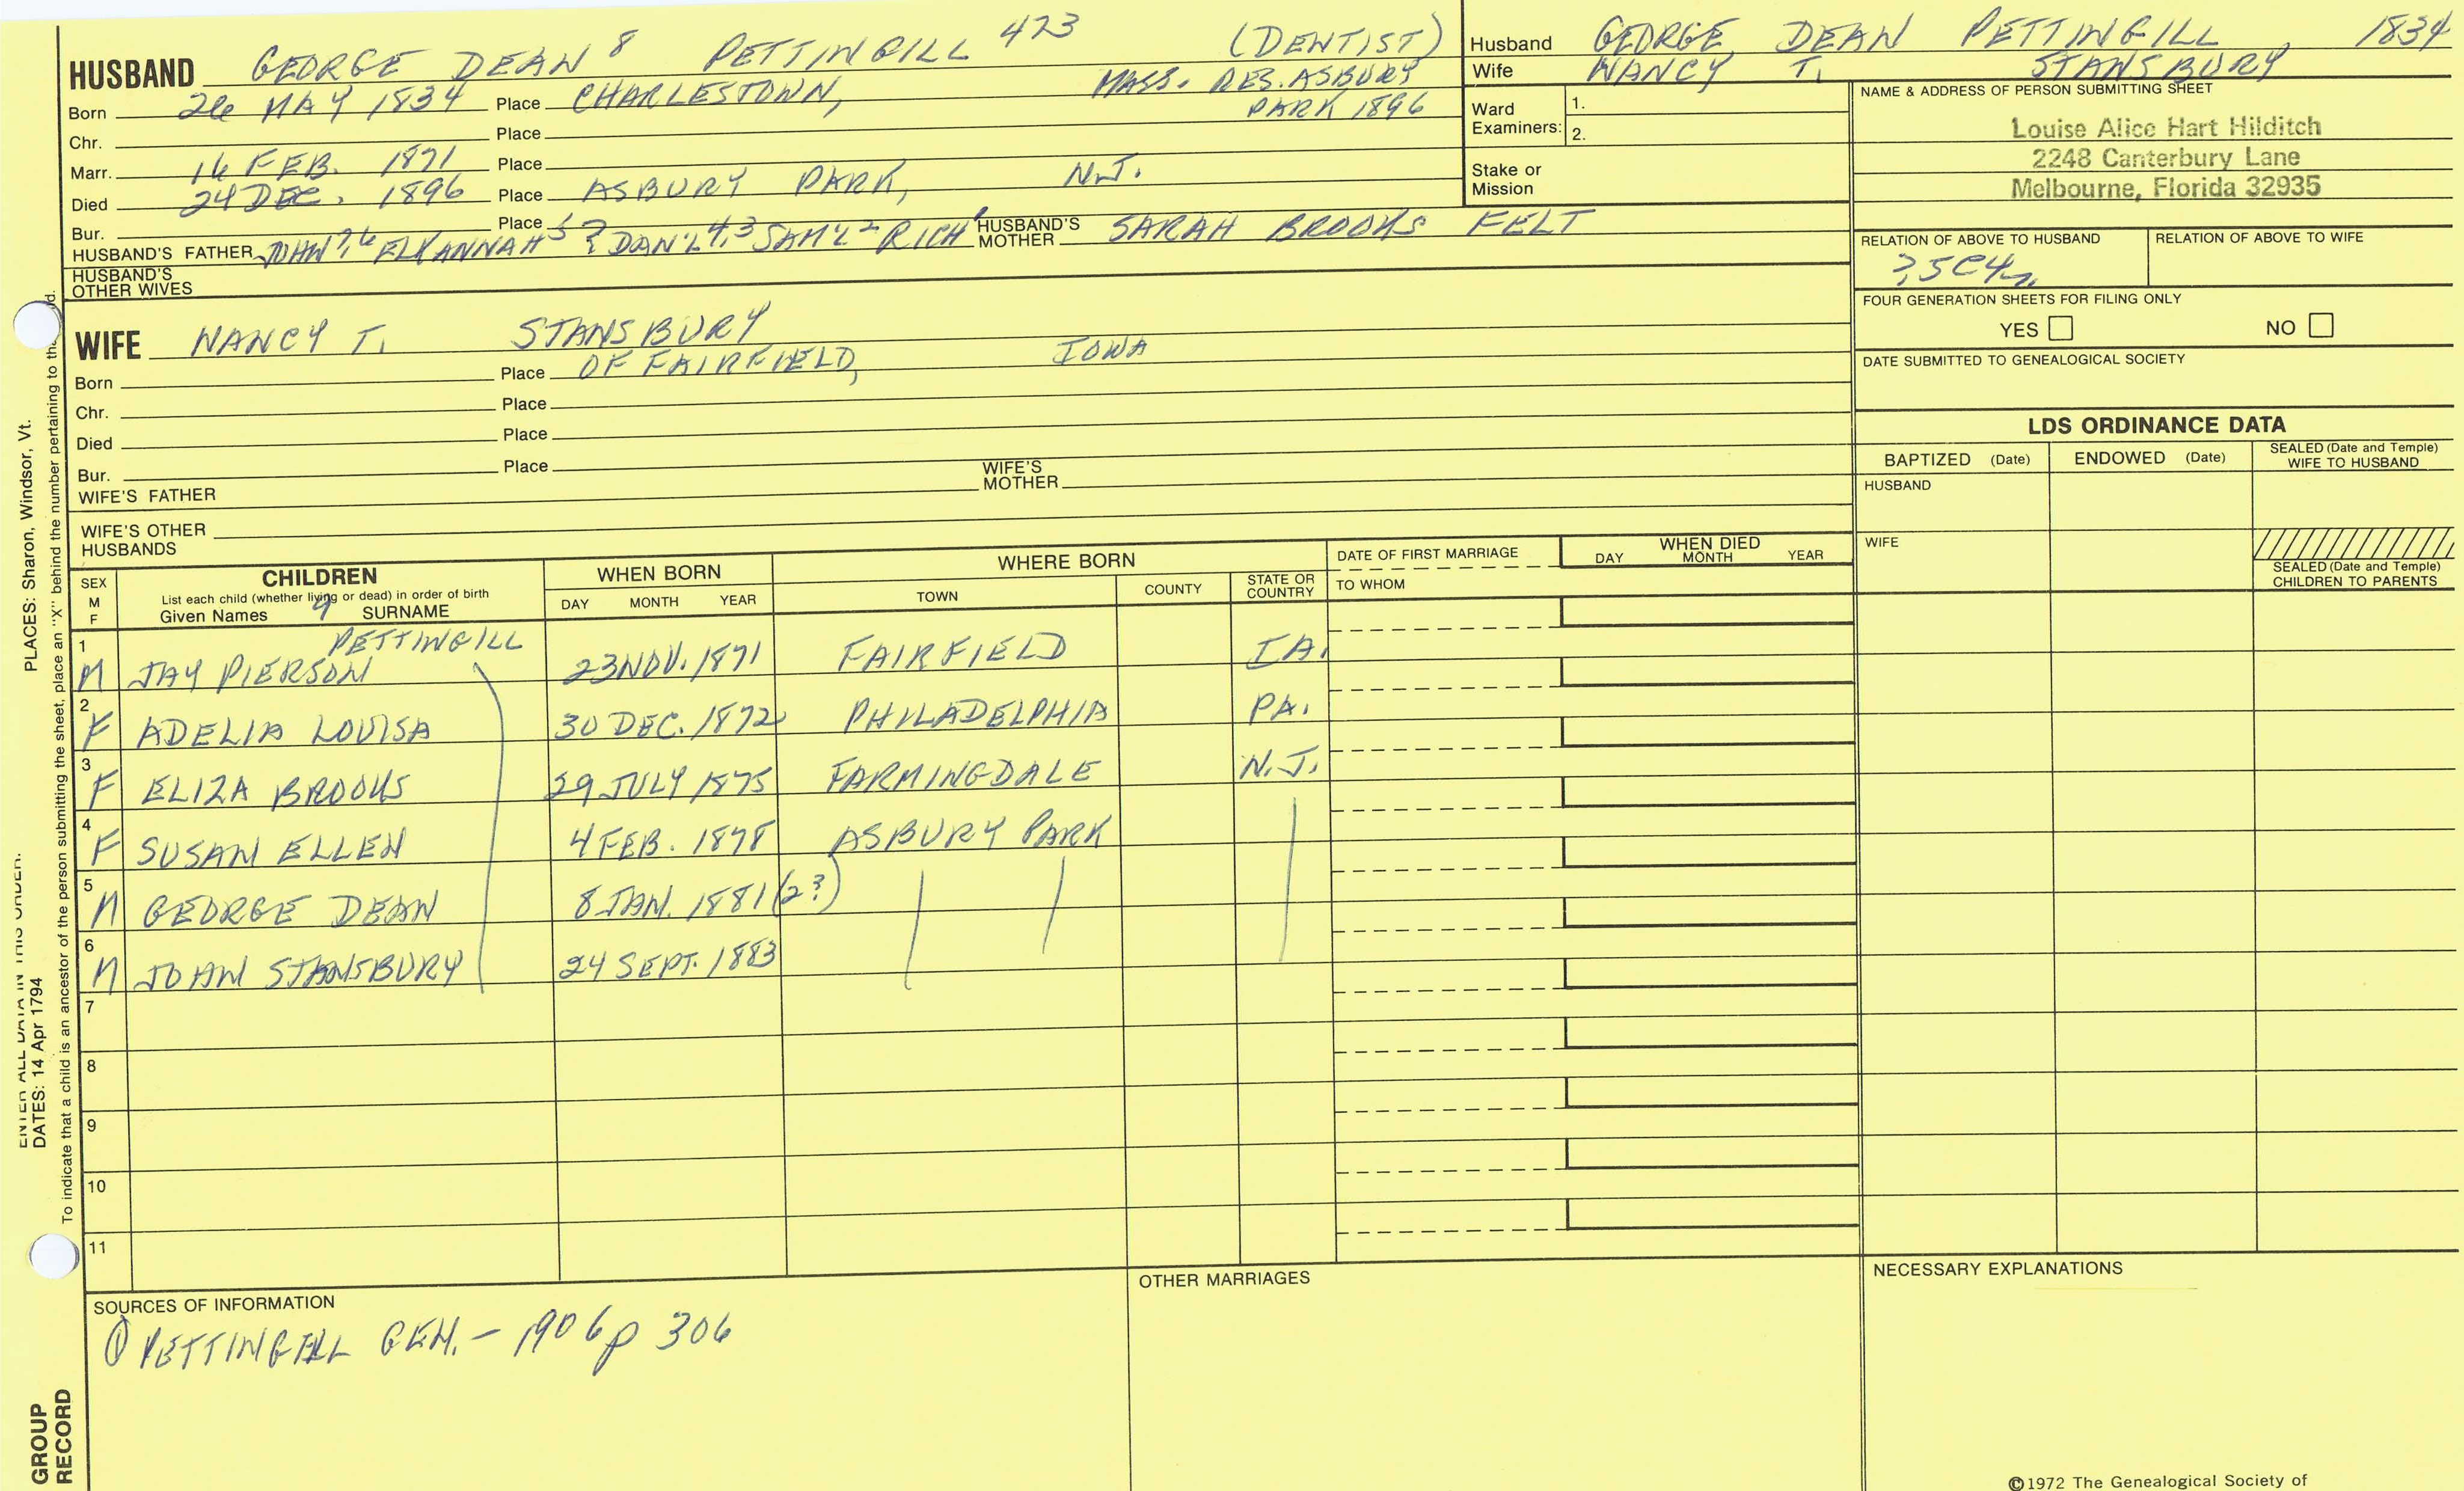 HUSBAND GEORGE DEAN 8 PETTINGILL 423 (DENTIST)
Born 26 MAY 1834 Place CHARLESTOWN, MASS. RES. ASBURY PARK 1896
Chr. Place
Marr. 16 FEB. 1871 Place
Died 24 DEC. 1896 Place ASBURY PARK, N.J.
Bur. Place
HUSBAND'S FATHER JOHN 7,6 ELKANNAH 5 ? DAN'L 4,3 SAM'L 2 RICH 1 HUSBAND'S MOTHER SARAH BROOKS FELT
HUSBAND'S OTHER WIVES
WIFE NANCY T. STANSBURY
Born Place OF FAIRFIELD, IOWA
Chr. Place
Died Place
Bur. Place
WIFE'S FATHER WIFE'S MOTHER
WIFE'S OTHER HUSBANDS
Husband GEORGE DEAN PETTINGILL, 1834
Wife NANCY T. STANSBURY
Ward Examiners: 1.
2.
Stake or Mission
NAME & ADDRESS OF PERSON SUBMITTING SHEET
Louise Alice Hart Hilditch
2248 Canterbury Lane
Melbourne, Florida 32935
RELATION OF ABOVE TO HUSBAND RELATION OF ABOVE TO WIFE
FOUR GENERATION SHEETS FOR FILING ONLY
YES NO
DATE SUBMITTED TO GENEALOGICAL SOCIETY
LDS ORDINANCE DATA
BAPTIZED (Date) ENDOWED (Date) SEALED (Date and Temple) WIFE TO HUSBAND
HUSBAND
WIFE
SEALED (Date and Temple) CHILDREN TO PARENTS
SEX M F CHILDREN WHEN BORN WHERE BORN DATE OF FIRST MARRIAGE WHEN DIED
List each child (whether living or dead) in order of birth
Given Names 9 SURNAME DAY MONTH YEAR TOWN COUNTY STATE OR COUNTRY TO WHOM DAY MONTH YEAR
PETTINGILL
1 M JAY PIERSON 23 NOV. 1871 FAIRFIELD IA.
2 F ADELIA LOUISA 30 DEC. 1872 PHILADELPHIA PA.
3 F ELIZA BROOKS 29 JULY 1875 FARMINGDALE N.J.
4 F SUSAN ELLEN 4 FEB. 1878 ASBURY PARK
5 M GEORGE DEAN 8 JAN. 1881 (2?)
6 M JOHN STANSBURY 24 SEPT. 1883
7
8
9
10
11
SOURCES OF INFORMATION
① PETTINGILL GEN. - 1906 p 306
OTHER MARRIAGES
NECESSARY EXPLANATIONS
©1972 The Genealogical Society of
GROUP RECORD
ENTER ALL DATA IN THIS ORDER:
DATES: 14 Apr 1794
PLACES: Sharon, Windsor, Vt.
To indicate that a child is an ancestor of the person submitting the sheet, place an "X" behind the number pertaining to